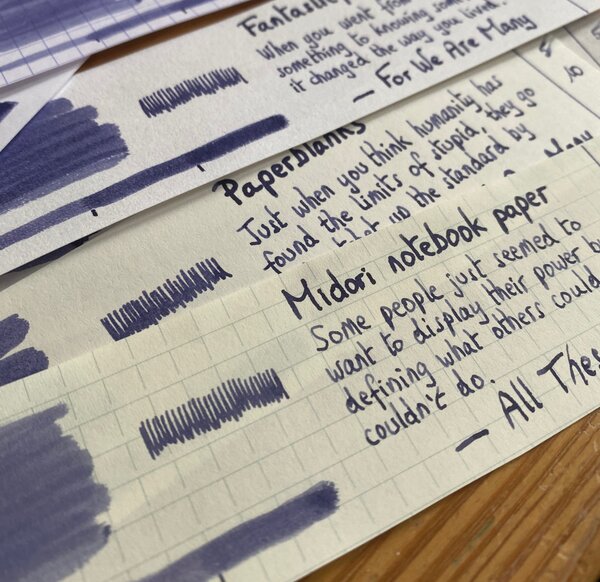 Fantastic
When you went from
something to knowing
it changed the way you lived.
— For We Are Many
Paperblanks
Just when you think humanity has
found the limits of stupid, they go
up the standard by
Many
Midori notebook paper
Some people just seemed to
want to display their power
defining what others could
couldn't do.
— All These